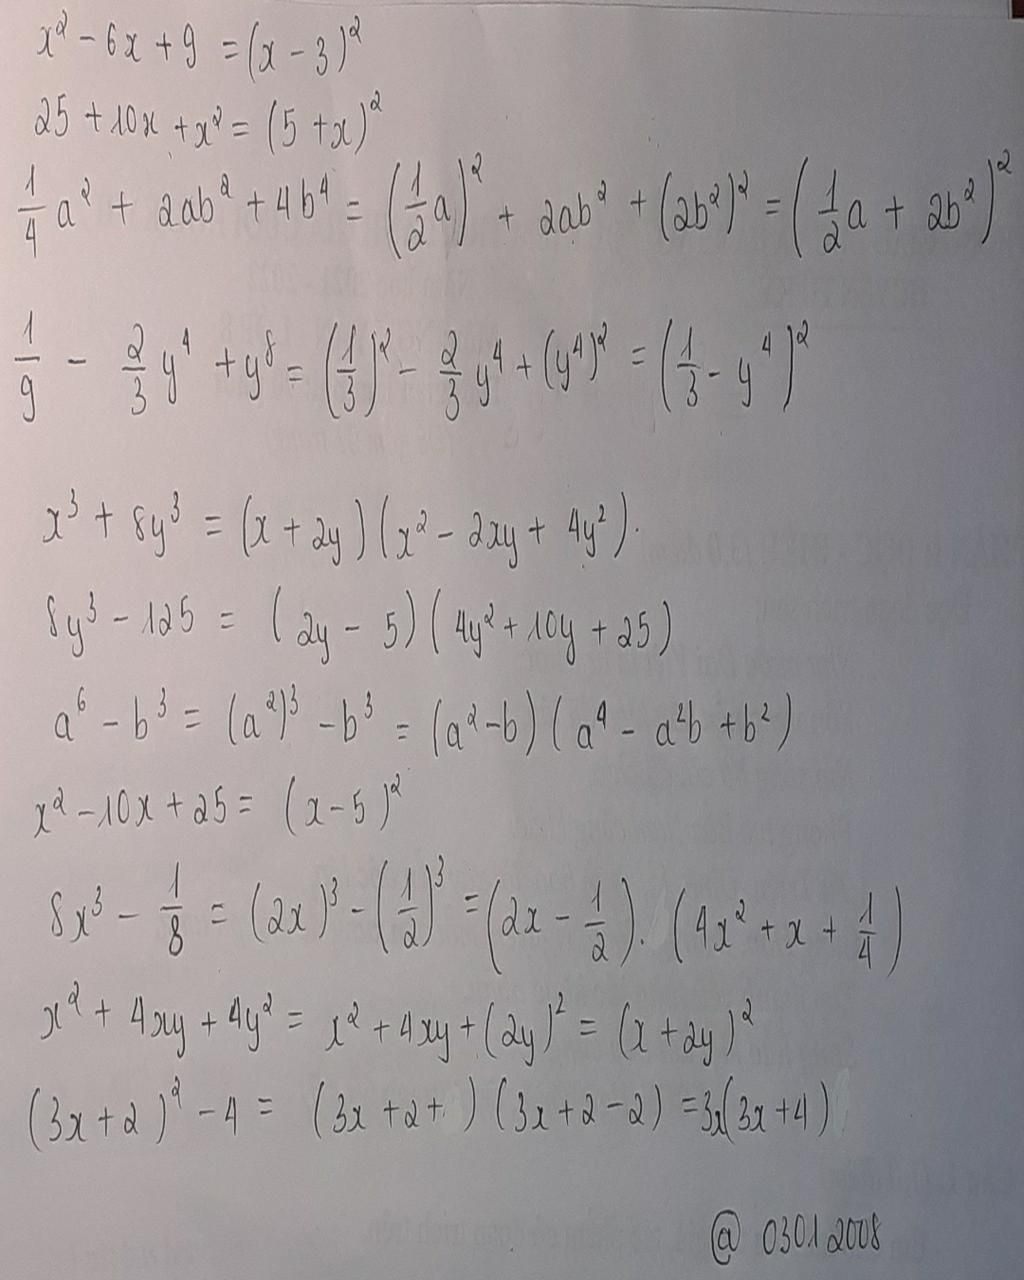 x² - 6x + 9 = (x - 3)²
25 + 10x + x² = (5 + x)²
1/4 a² + 2ab² + 4b⁴ = (1/2 a)² + 2ab² + (2b²)² = (1/2 a + 2b²)²
1/9 - 2/3 y⁴ + y⁸ = (1/3)² - 2/3 y⁴ + (y⁴)² = (1/3 - y⁴)²
x³ + 8y³ = (x + 2y)(x² - 2xy + 4y²).
8y³ - 125 = (2y - 5)(4y² + 10y + 25)
a⁶ - b³ = (a²)³ - b³ = (a² - b)(a⁴ - a²b + b²)
x² - 10x + 25 = (x - 5)²
8x³ - 1/8 = (2x)³ - (1/2)³ = (2x - 1/2).(4x² + x + 1/4)
x² + 4xy + 4y² = x² + 4xy + (2y)² = (x + 2y)²
(3x + 2)² - 4 = (3x + 2 + )(3x + 2 - 2) = 3x(3x + 4)
@ 03012008